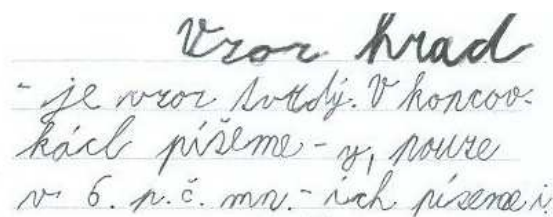 Vzor hrad
- je vzor tvrdý. V koncov-
kách píšeme - y, pouze
v 6. p. č. mn. - ích píšeme i,